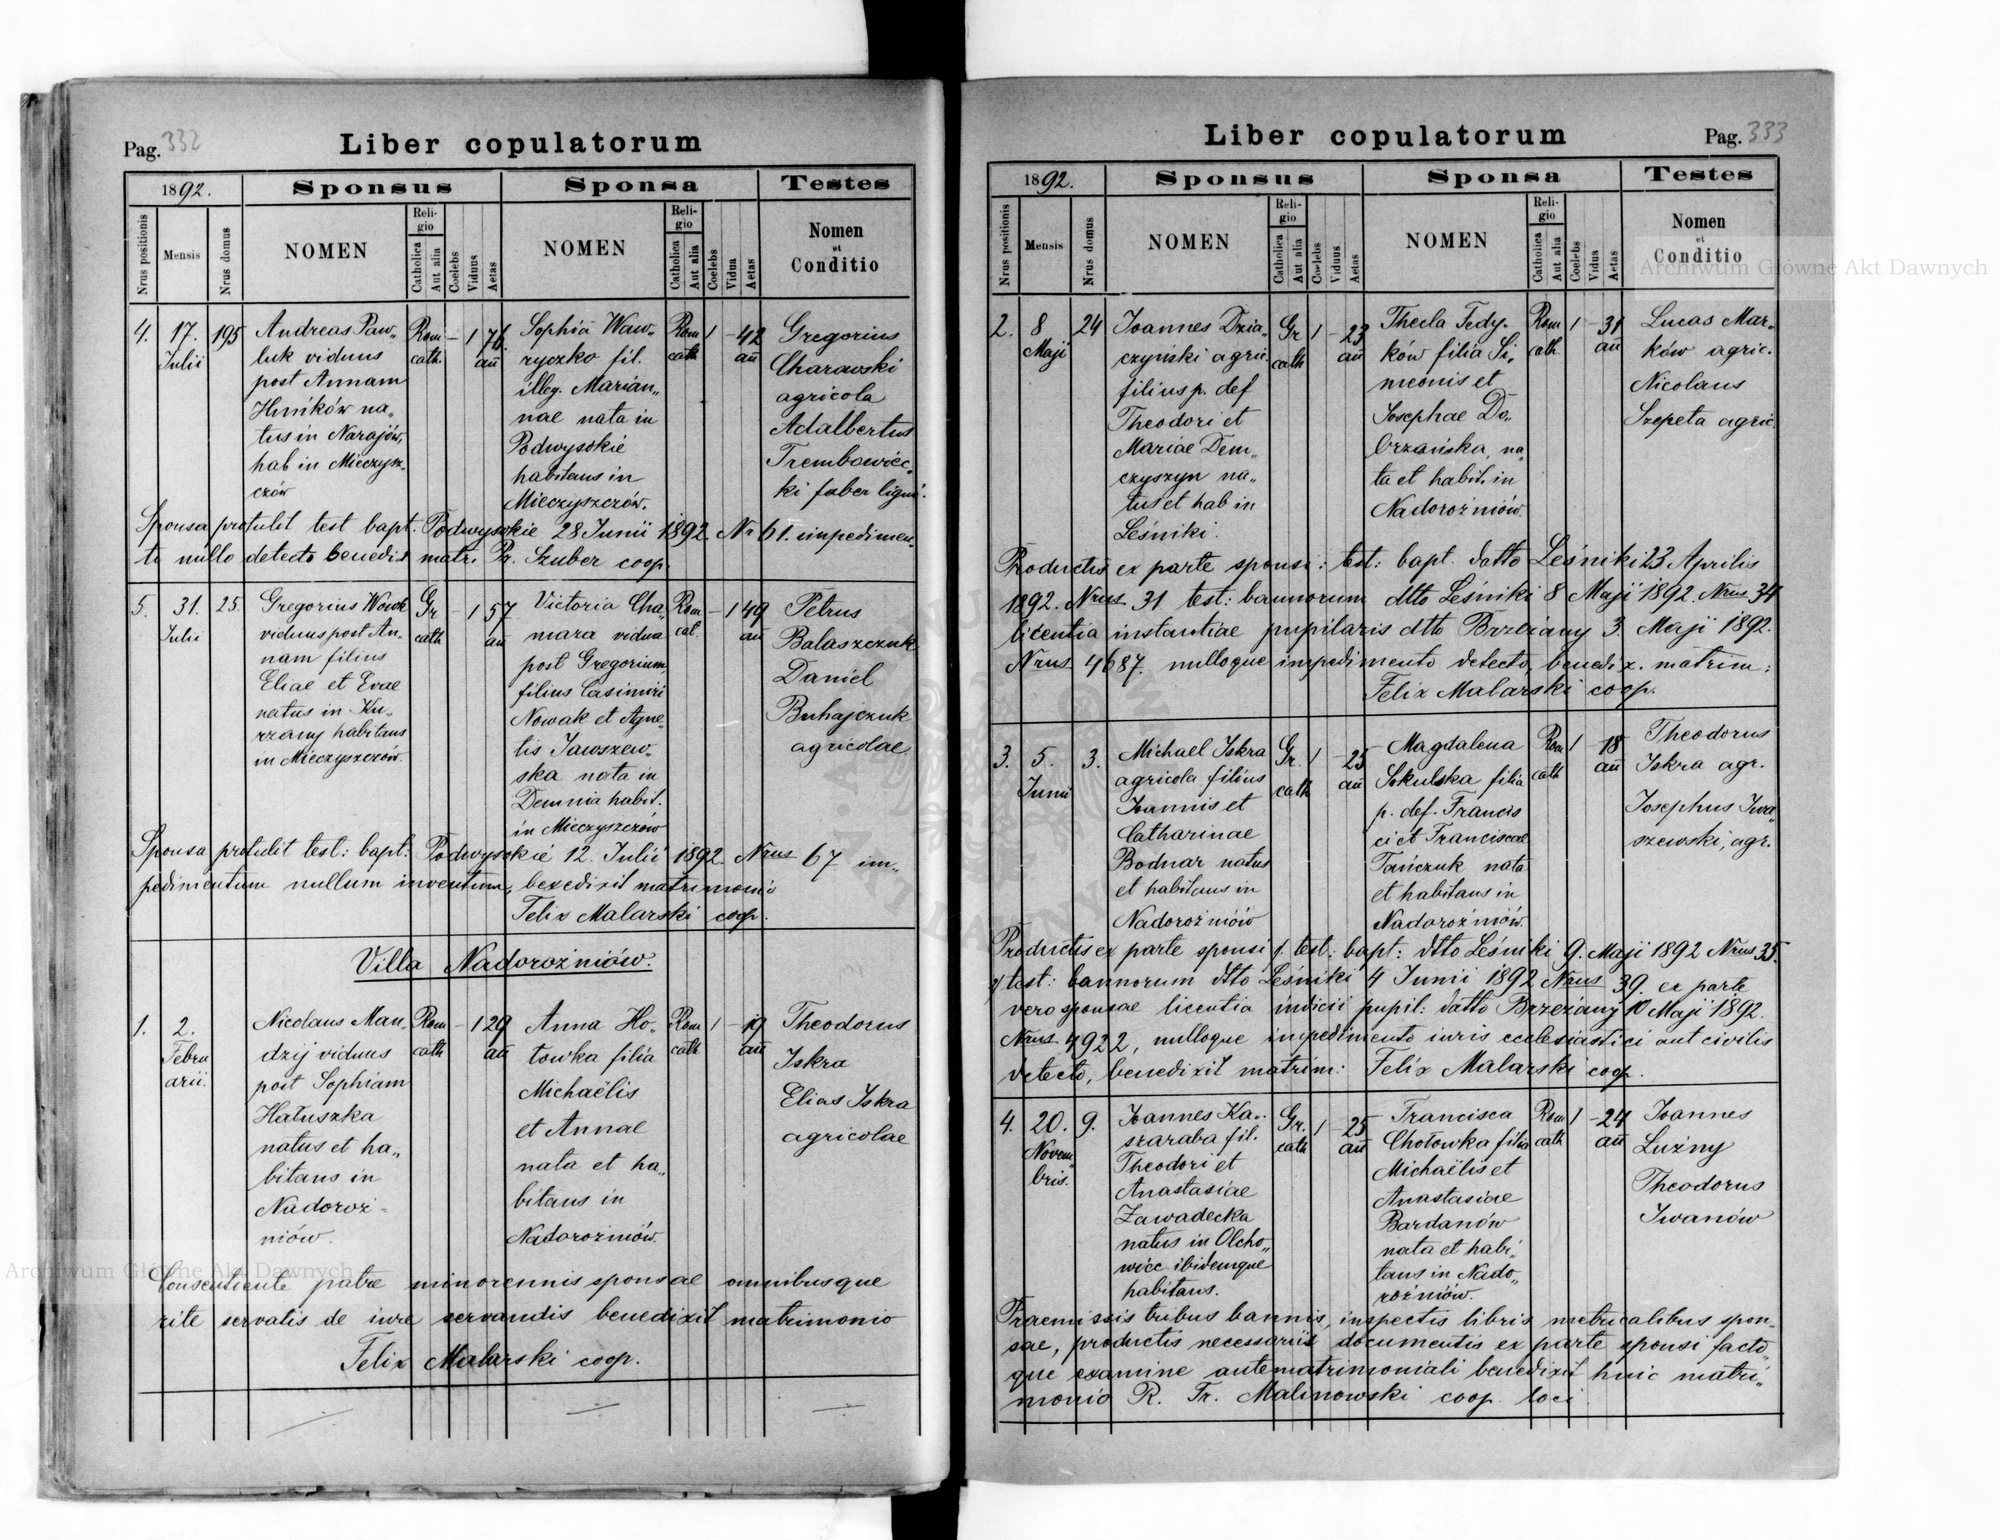 Pag. 332
Liber copulatorum
1892.
Sponsus
Sponsa
Testes
Nrus positionis
Mensis
Nrus domus
NOMEN
Religio
Catholica
Aut alia
Coelebs
Viduus
Aetas
NOMEN
Religio
Catholica
Aut alia
Coelebs
Vidua
Aetas
Nomen
et
Conditio
4.
17.
Julii
195
Andreas Paw„
luk viduus
post Annam
Huików na„
tus in Narajów,
hab in Mieczysz„
czów
Rom
cath.
– 1 76
an̄
Sophia Waw„
ryczko fil.
illeg. Marian„
nae nata in
Podwysokie
habitans in
Mieczyszczów.
Rom
cath
1 – 42
an̄
Gregorius
Charawski
agricola
Adalbertus
Trembowiec„
ki faber lignr.
Sponsa protulit test bapt. Podwysokie 28 Junii 1892. Nr 61. impedimen„
to nullo detecto benedix matri Pr. Szuber coop.
5.
31.
Julii
25.
Gregorius Wowk
viduus post An„
nam filius
Eliae et Evae
natus in Ku„
rzany habitans
in Mieczyszczów.
Gr
cath
– 1 57
an̄
Victoria Cha„
mara vidua
post Gregorium
filius Casimiri
Nowak et Agne„
tis Jawszew„
ska nata in
Demnia habit.
in Mieczyszczów
Rom
cat.
– 1 49
an̄
Petrus
Balaszczuk
Daniel
Buhajczuk
agricolae.
Sponsa protulit test: bapt: Podwysokie 12. Julii 1892. Nrus 67 im„
pedimentum nullum inventum, benedixit matrimonio
Felix Malarski coop.
Villa Nadorożniów.
1.
2.
Febru
arii.
Nicolaus Man„
dzij viduus
post Sophiam
Hatuszka
natus et ha„
bitans in
Nadoroż-
niów.
Rom
cath
– 1 29
an̄
Anna Ho„
towka filia
Michaëlis
et Annae
nata et ha„
bitans in
Nadorożniów.
Rom
cath
1 – 19
an̄
Theodorus
Iskra
Elias Iskra
agricolae
Consentiente patre minorennis sponsae omnibusque
rite servatis de iure servandis benedixit matrimonio
Felix Malarski coop.
Liber copulatorum
Pag. 333
1892.
Sponsus
Sponsa
Testes
Nrus positionis
Mensis
Nrus domus
NOMEN
Religio
Catholica
Aut alia
Coelebs
Viduus
Aetas
NOMEN
Religio
Catholica
Aut alia
Coelebs
Vidua
Aetas
Nomen
et
Conditio
2.
8
Maji
24
Joannes Dzia„
czyński agric.
filius p. def
Theodori et
Mariae Dem„
czyszyn na„
tus et hab in
Leśniki.
Gr
cath
1 – 23
an̄
Thecla Fedy„
ków filia Si„
meonis et
Josephae Do„
brzańska, na„
ta et habit. in
Nadorożniów.
Rom
cath.
1 – 31
an̄
Lucas Mar„
ków agric.
Nicolaus
Szepeta agric.
Productis ex parte sponsi: test: bapt. datto Leśniki 23 Aprilis
1892. Nrus. 31 test: bannorum dtto Leśniki 8 Maji 1892. Nrus 34
licentia instantiae pupilaris dtto Brzeżany 3. Maji 1892.
Nrus 4687. nulloque impedimento detecto, benedix. matrim:
Felix Malarski coop.
3.
5.
Junii
3.
Michael Iskra
agricola filius
Joannis et
Catharinae
Bodnar natus
et habitans in
Nadorożniów
Gr.
cath
1 – 25
an̄
Magdalena
Sokulska filia
p. def. Francis
ci et Franciscae
Tańczuk nata
et habitans in
Nadorożniów.
Rom
cath
1 – 18
an̄
Theodorus
Iskra agr.
Josephus Iwa„
szewski, agr.
Productis ex parte sponsi 1. test: bapt: dtto Leśniki 9. Maji 1892 Nrus 35.
2/ test: bannorum dtto Leśniki 4 Junii 1892 Nrus 39. ex parte
vero sponsae licentia indicii pupil: datto Brzeżany 10 Maji 1892.
Nrus 4922, nulloque impedimento iuris ecclesiastici aut civilis
detecto, benedixit matrim: Felix Malarski coop.
4.
20.
Novem„
bris.
9.
Joannes Ka„
szaraba fil.
Theodori et
Anastasiae
Zawadecka
natus in Olcho„
wiec ibidemque
habitans.
Gr.
cath
1 – 25
an̄
Francisca
Chołowka filia
Michaëlis et
Anastasiae
Bardanów
nata et habi„
tans in Nado„
rożniów.
Rom
cath
1 – 24
an̄
Joannes
Luźny
Theodorus
Iwanów
Praemissis tribus bannis, inspectis libris metricalibus spon„
sae, productis necessariis documentis ex parte sponsi facto„
que examine antematrimoniali benedixit huic matri„
monio R. Fr. Malinowski coop. loci.
Archiwum Główne Akt Dawnych
Archiwum Główne Akt Dawnych